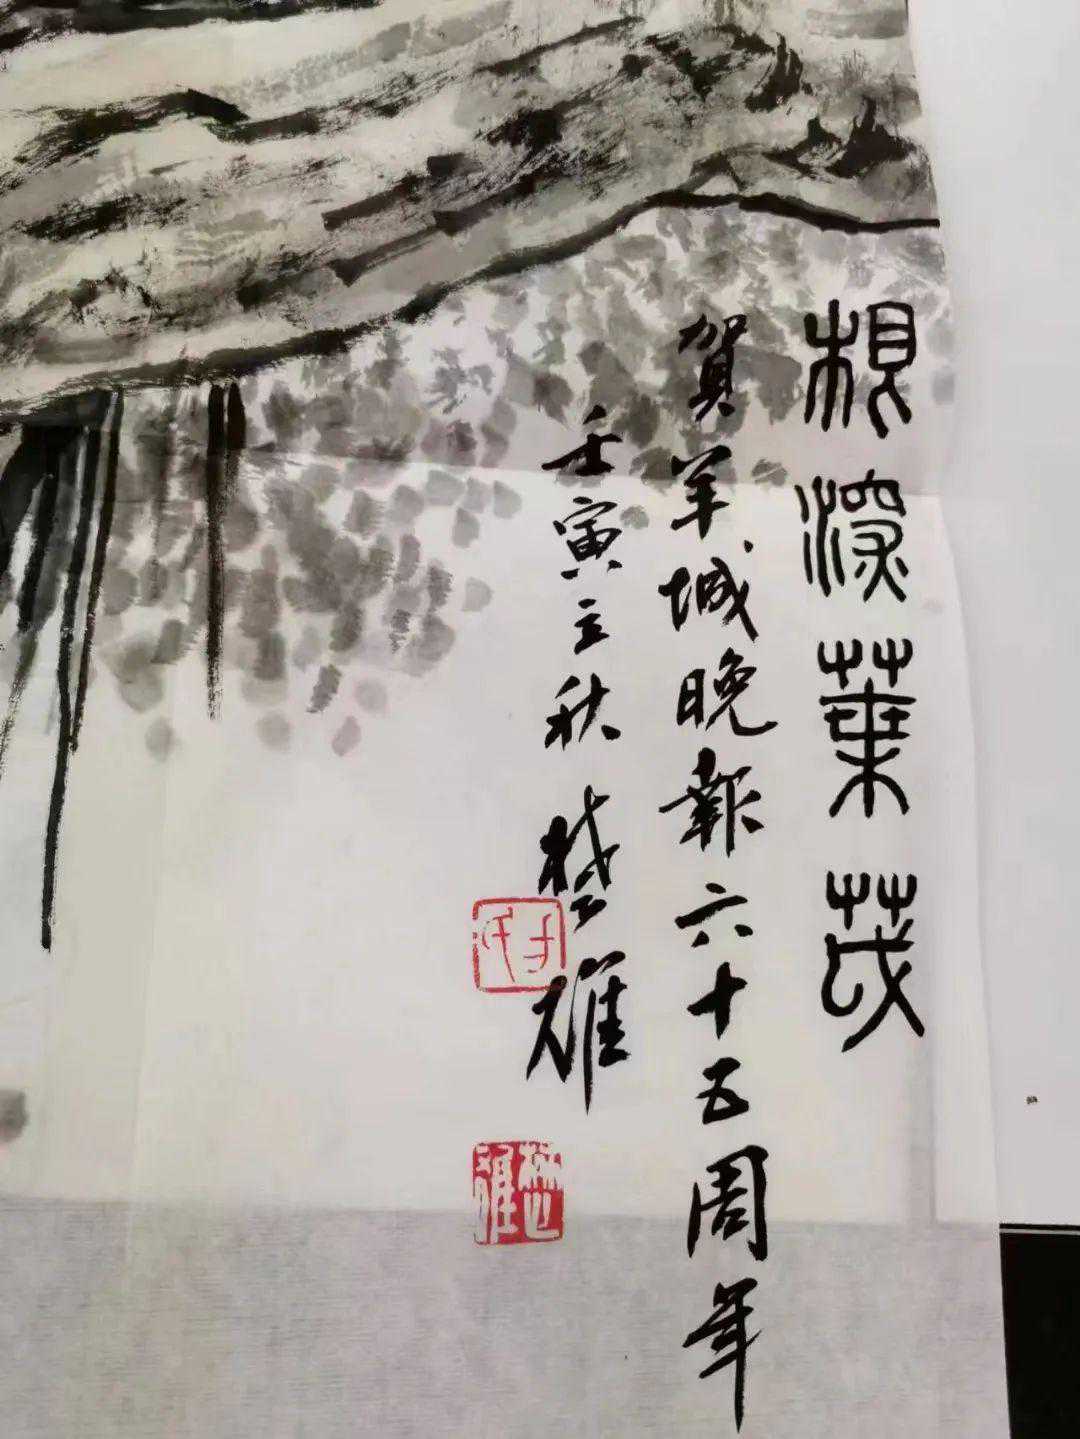 根深葉茂
賀羊城晚報六十五周年
壬寅立秋楚雄